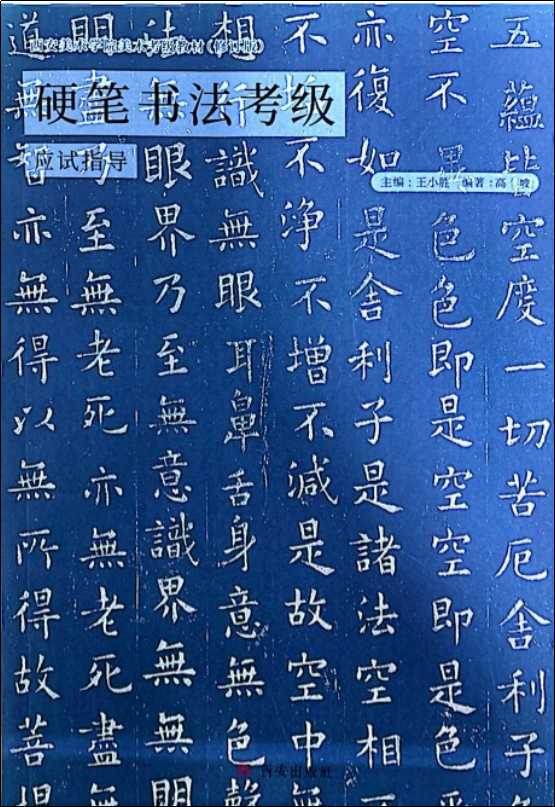 西安美术学院美术考级教材(修订版)
硬笔书法考级
应试指导
主编：王小胜 编著：高 坡
五蘊皆空度一切苦厄舍利子
空不異色色即是空空即是色
亦復如是舍利子是諸法空相
不垢不淨不增不減是故空中
想行識無眼耳鼻舌身意無色聲
法無眼界乃至無意識界無無明
明盡乃至無老死亦無老死盡
道無智亦無得以無所得故菩
西安出版社